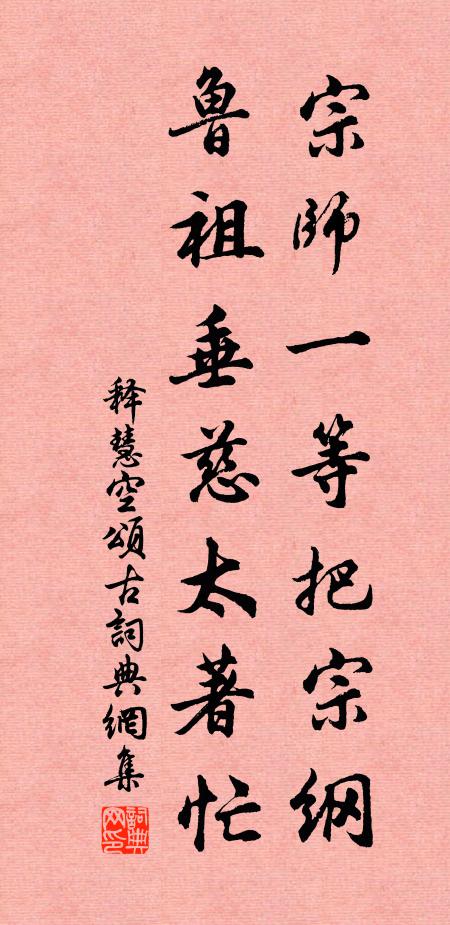 宗師一等把宗纲
魯祖垂慈太著忙
释慧空頌古詞典網集
詞典
网印